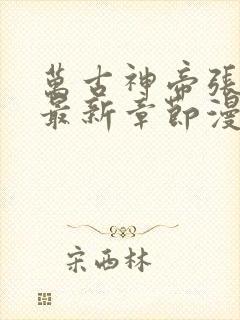 萬古神帝張
最新章節漫
宋西林